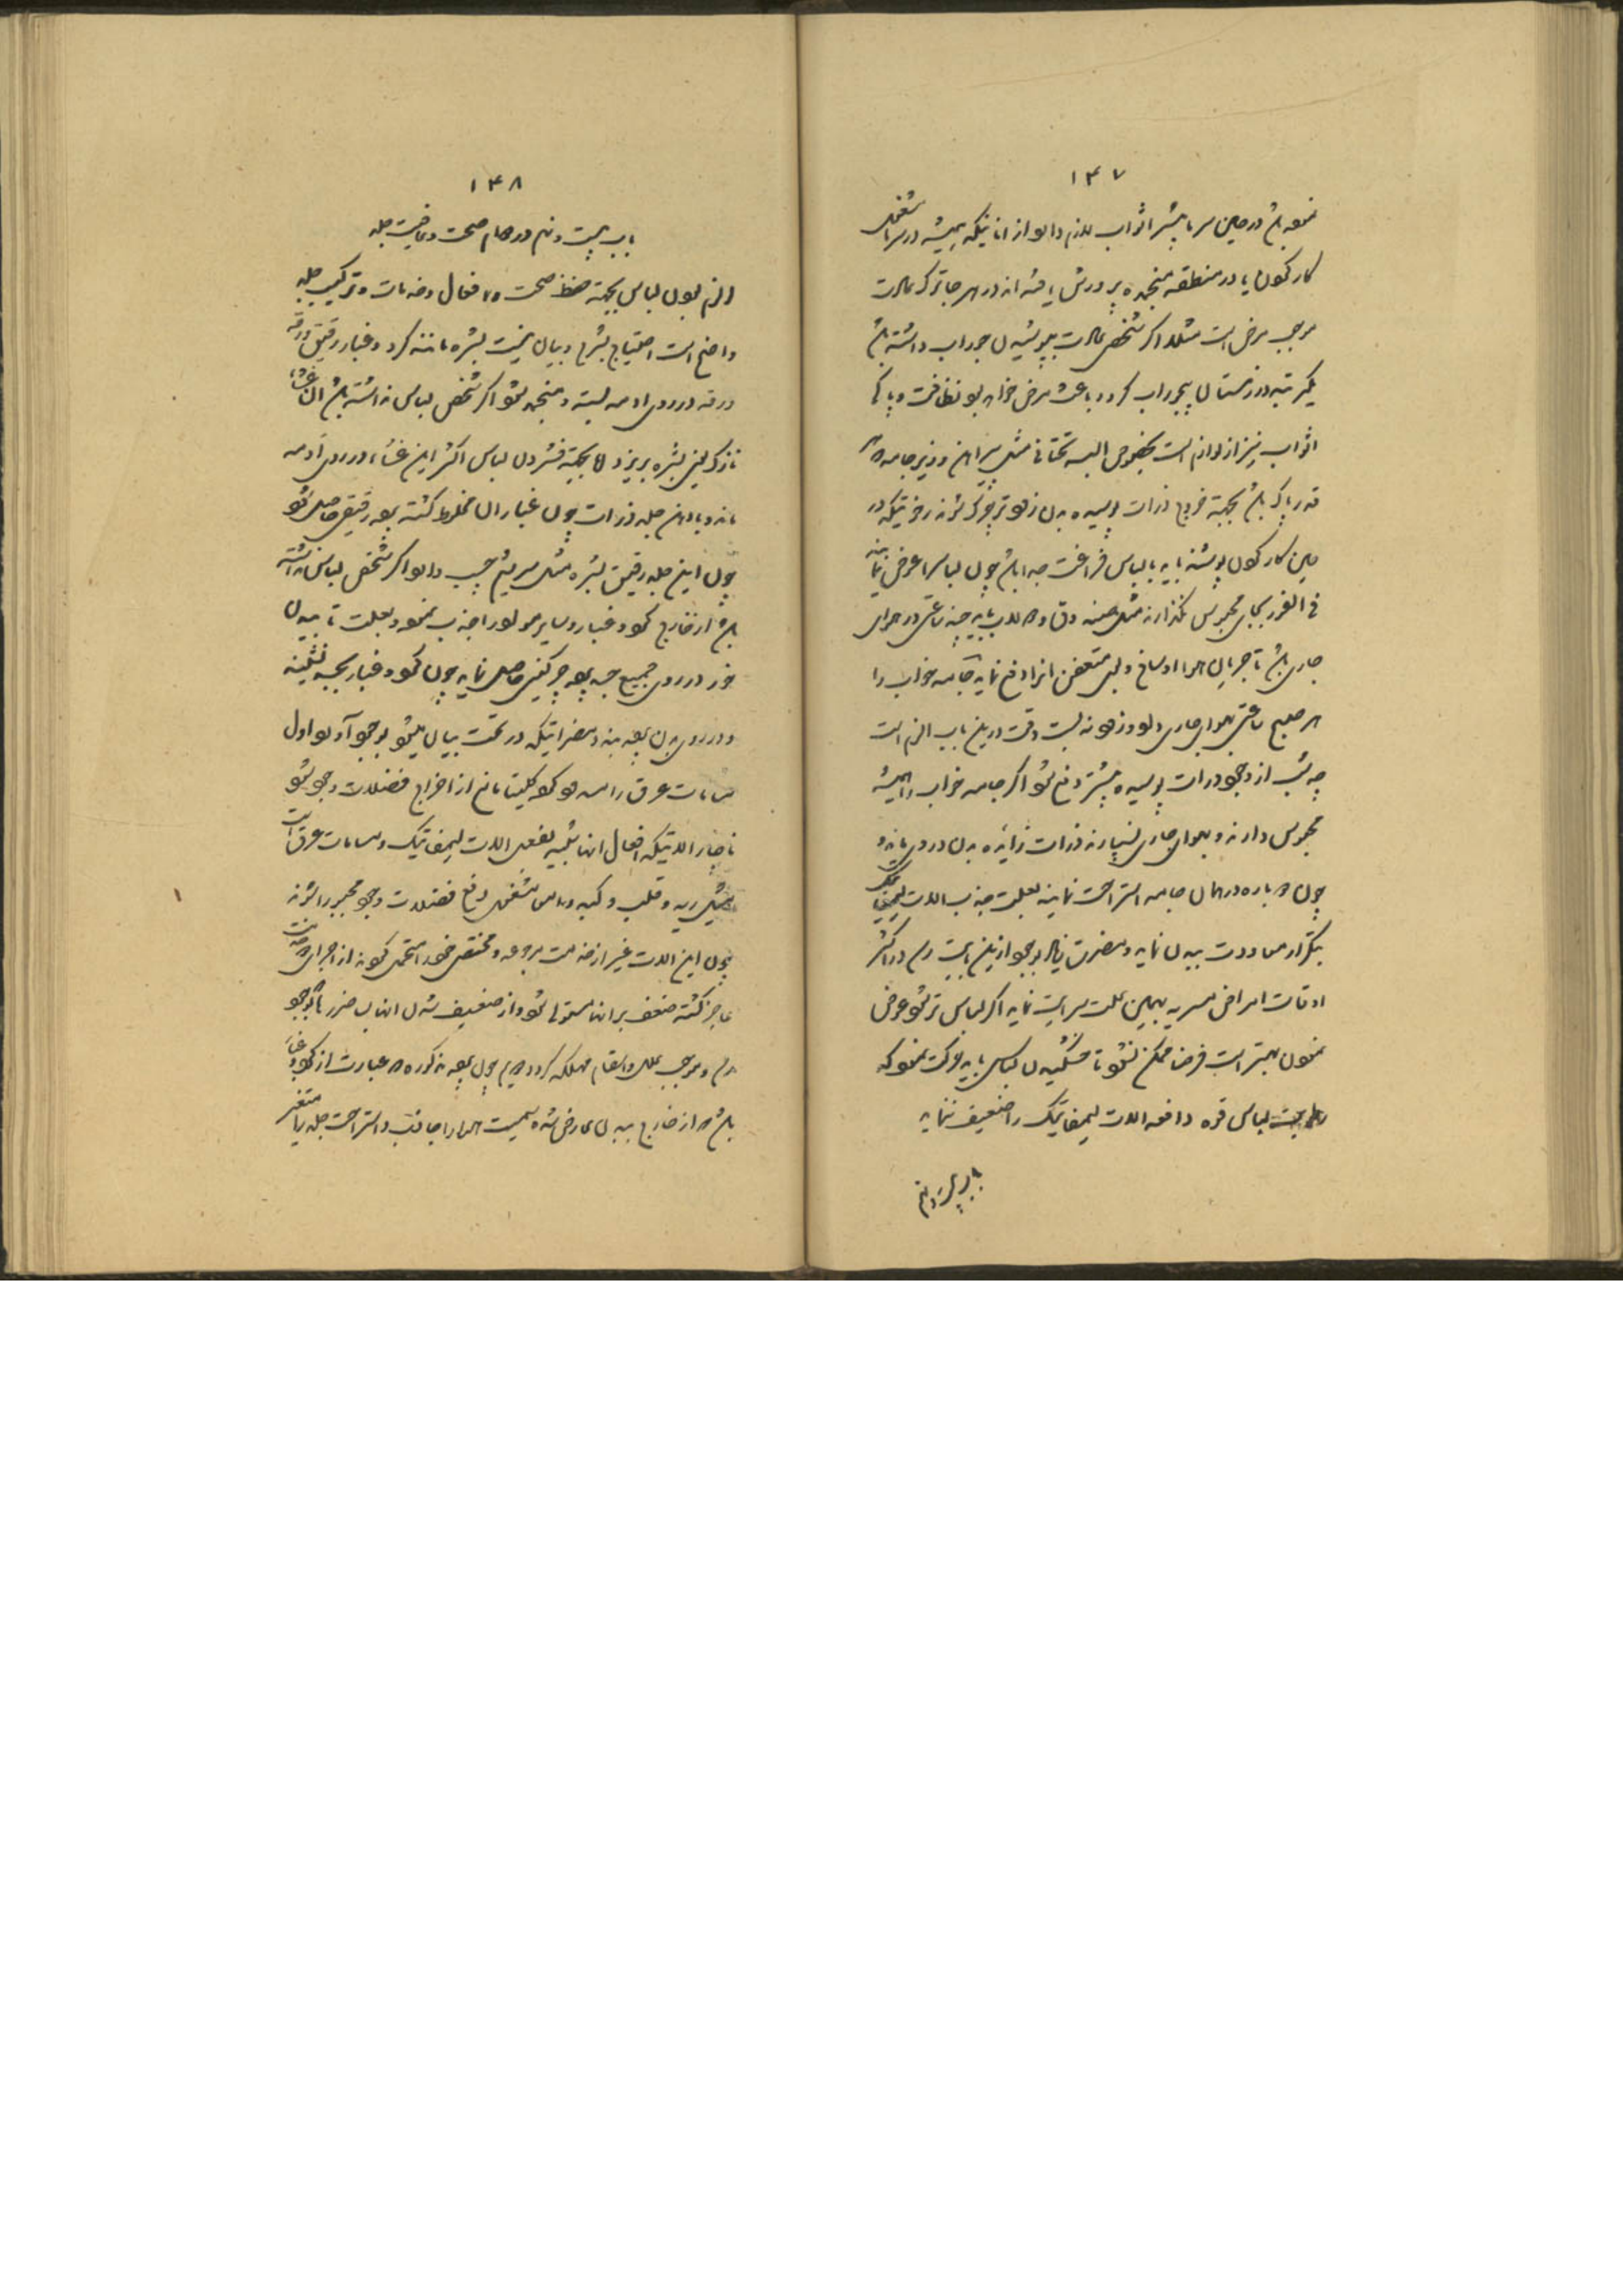 ۱۴۷
نموده باشد در حین سرما بیشتر اثواب لازم دارد از انانیکه همیشه در سرما مشغول
کار کردن یا در منطقه منجمده پرورش یافته اند در هر جا ترک عادت
موجب مرض است مثلا اگر شخصی عادت بپوشیدن جوراب داشته باشد
یکمرتبه در زمستان بیجوراب گردد باعث مرض خواهد بود نظافت و پاکی
اثواب نیز از لوازم است بخصوص البسه تحتانی مثل پیراهن و زیرجامه هر
قدر پاک باشد بجهته خروج ذرات پوسیده بدن زودتر چرک شوند رختیکه در
حین کار کردن پوشند باید با لباس فراغت جدا باشد چون لباس را عوض نمایند
فی الفور بجای محبوس نگذارند مثل صندوق و دولاب باید چند ساعتی در هوای
جاری باشد تا جریان هوا اوساخ و بوی متعفن انرا دفع نماید جامه خواب را
هر صبح ساعتی بهوای جاری دادن زودتر لازمست دقت درین باب الزم است
چه شب از وجود ذرات پوسیده بیشتر دفع شود اگر جامه خواب را همیشه
محبوس دارند و بهوای جاری نسپارند ذرات زائده بدن در وی بماند و
چون دوباره در همان جامه استراحت نمایند بعلت جذب الات لیمفاتیک
بتکرار معاودت ببدن نماید و مضرت زیاد بوجود آید ازین است که در اکثر
اوقات امراض مسریه بهمین علت سرایت نماید اگر لباس تر شود عوض
نمودن بهتر است فرضا ممکن نشود تا خشکیدن لباس باید حرکت نمود که
رطوبت لباس قوه دافعه الات لیمفاتیک را ضعیف ننماید
باب بیست و نهم
۱۴۸
باب بیست و نهم در دوام صحت و عافیت جلد
الزم بودن لباس بجهته حفظ صحت و افعال و خدمات و ترکیب جلد
واضح است احتیاج بشرح و بیان نیست بشره مانند گرد و غبار رقیق ورقه
ورقه در روی ادمه بسته و منجمد شود اگر شخص لباس نداشته باشد ان غشاء
نازک یعنی بشره بریزد اما بجهته فشردن لباس اکثر این غشاء در روی ادمه
ماند و با دهن جلد ذرات چون غبار ان مخلوط گشته پرده رقیقی حاصل شود
چون این جلد رقیق بشره مثل سریشم چسب دارد اگر شخص لباس نداشته
باشد از خارج گرد و غبار و سایر مواد را جذب نموده بعلت تابیدن
خور در روی جمیع جسد پرده چرکینی حاصل نماید چون گرد و غبار بجسد نشیند
و در روی بدن پرده بندد مضراتیکه در تحت بیان میشود بوجود آورد اول
مسامات عرق را مسدود کرده کلیتا مانع از اخراج فضلات وجود شود
ناچار الاتیکه افعال انها شبیه بفعل الات لیمفاتیک و مسامات عرق است
مثل ریه و قلب و کبد و امعاء مشغول دفع فضلات وجود مجبور شوند
چون این الات غیر از خدمت مرجوعه و مختص خود را تحمل کردند از اجرای خدمت
عاجز گشته ضعف بر انها مستولی شود و از ضعیف شدن انها بس ضررها بوجود
آید و موجب علل و اسقام مهلکه گردد دویم چون پرده مذکوره که عبارت از گرد و غبار
باشد که از خارج ببدن عارض شده سمیت هوا را جاذب و استراحت جلد را متغیر